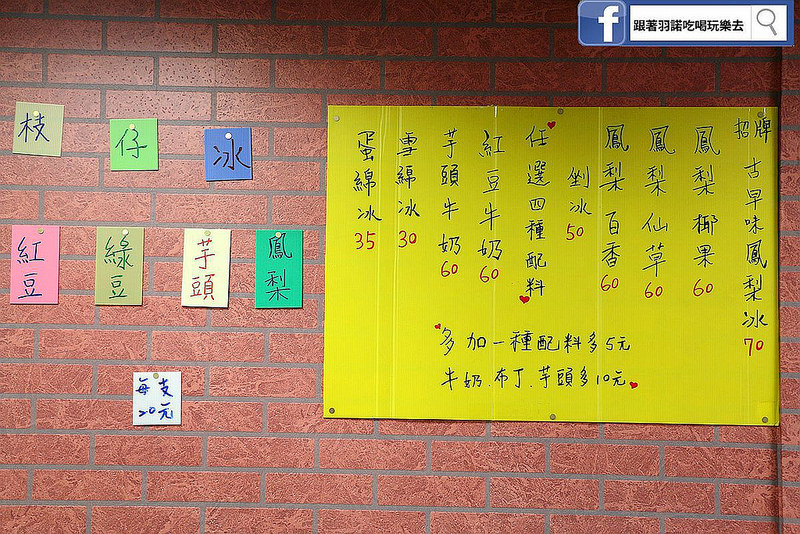 跟著羽諾吃喝玩樂去
枝
仔
冰
紅豆
綠豆
芋頭
鳳梨
每支
20元
招牌 古早味鳳梨冰 70
鳳梨椰果 60
鳳梨仙草 60
鳳梨百香 60
剉冰 50
任選四種配料
紅豆牛奶 60
芋頭牛奶 60
雪綿冰 30
蛋綿冰 35
多加一種配料多5元
牛奶.布丁.芋頭多10元